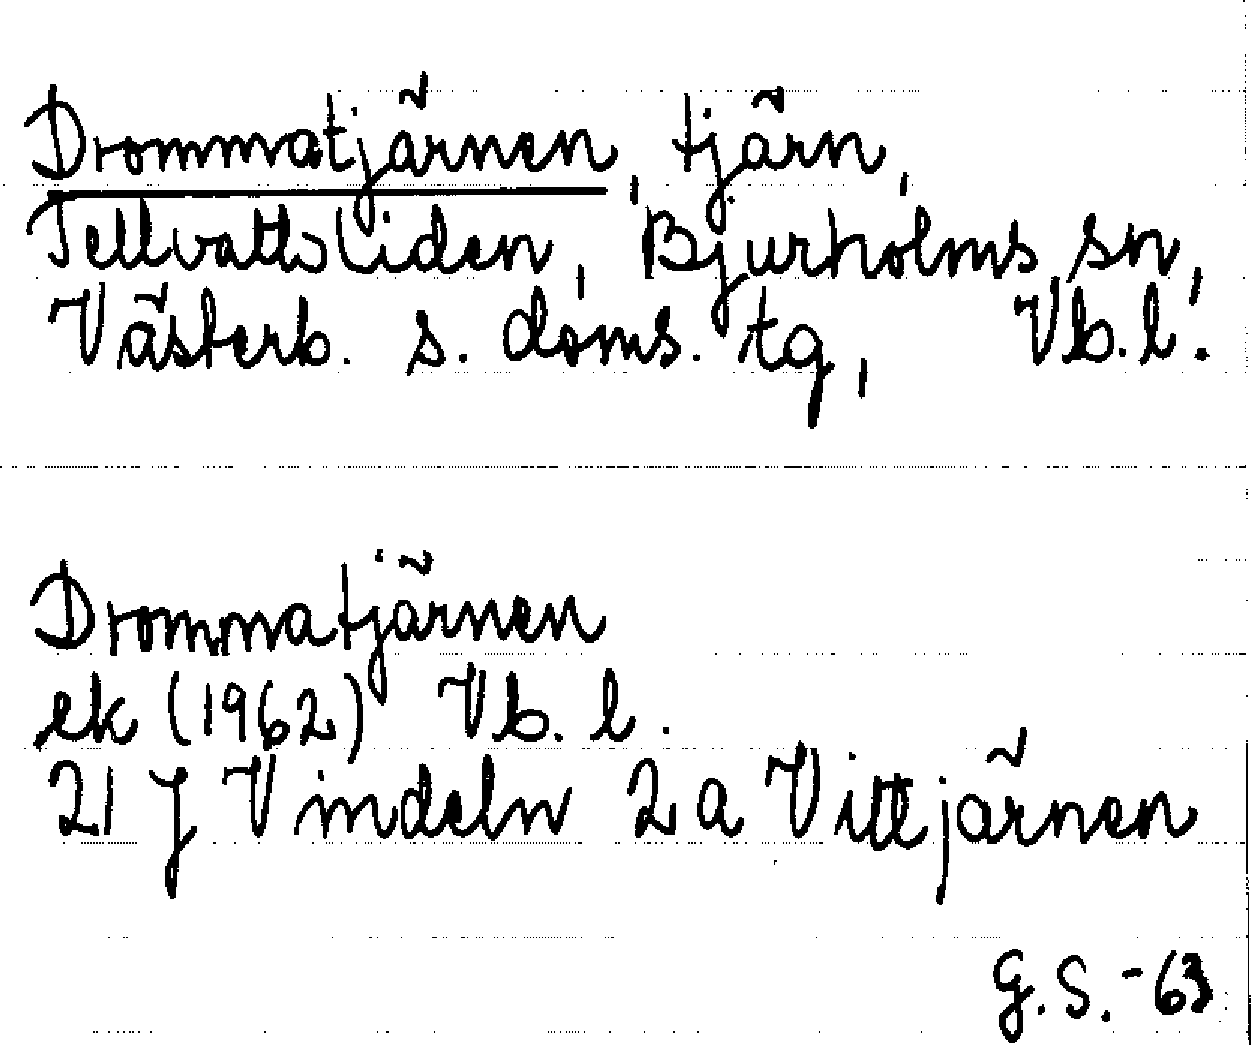 Drommatjärnen, tjärn,
Tellvattsliden, Bjurholms sn,
Västerb. s. doms. tg, Vb.l.
Drommatjärnen
ek (1962) Vb. l.
21 J Vindeln 2a Vittjärnen
G.S. -63